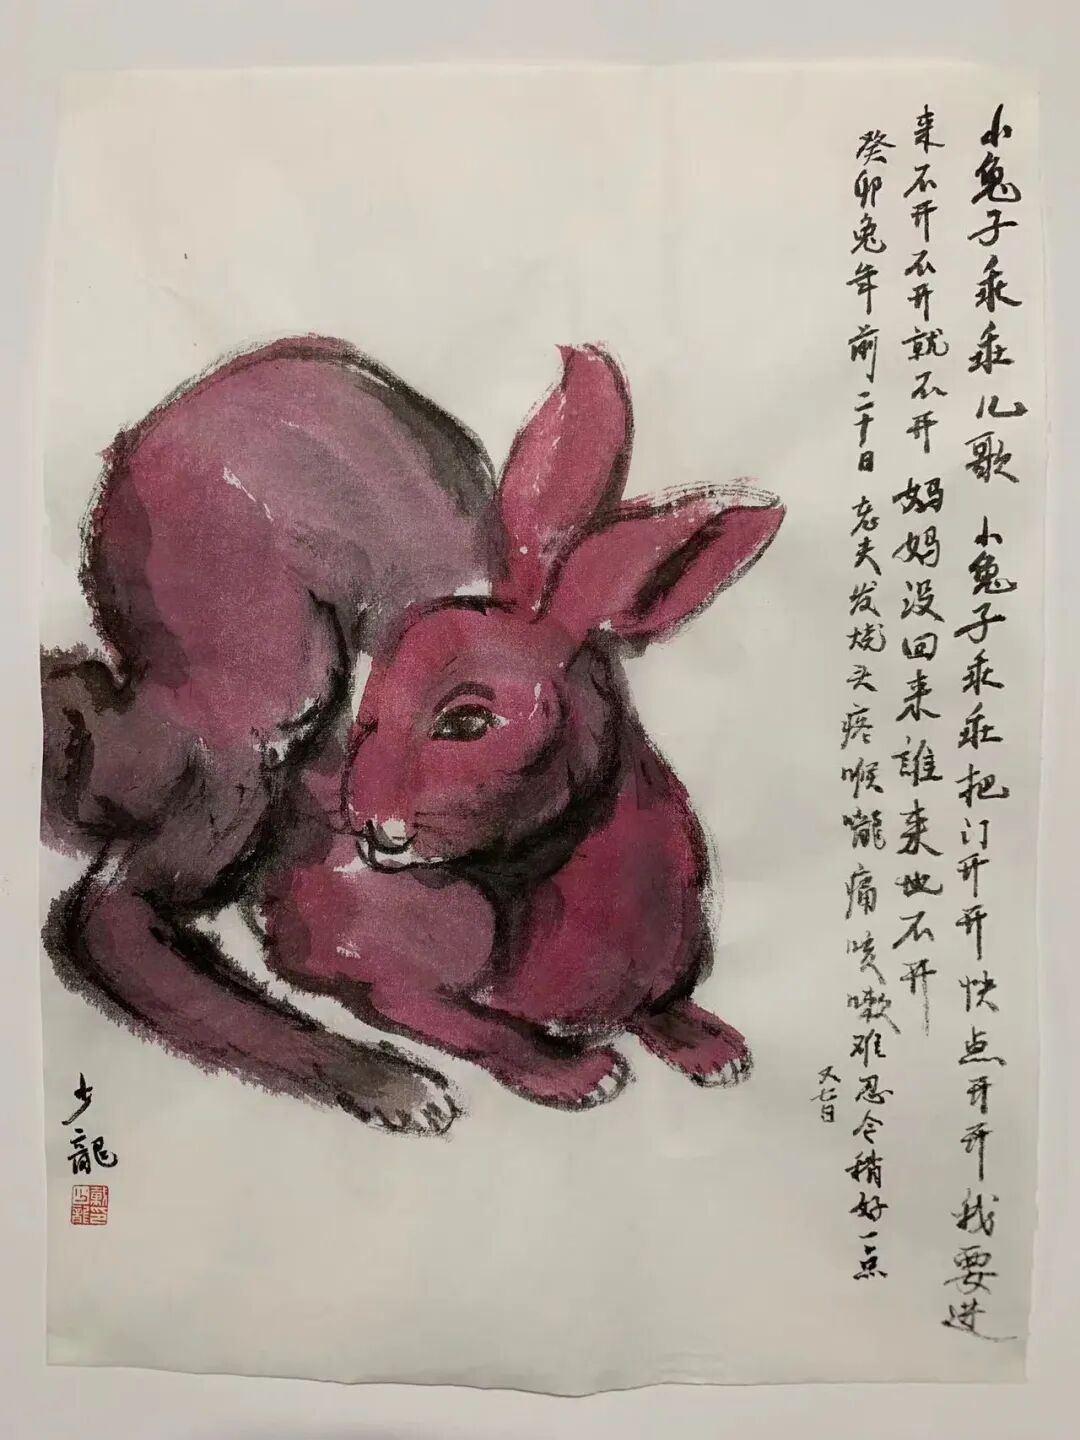 小兔子乖乖儿歌 小兔子乖乖把门开开快点开开我要进
来不开不开就不开妈妈没回来誰来地不开
癸卯兔年前二十日 老夫发烧头疼喉嚨痛咳嗽难忍今稍好一点
又七日
少龍
戴少龍印